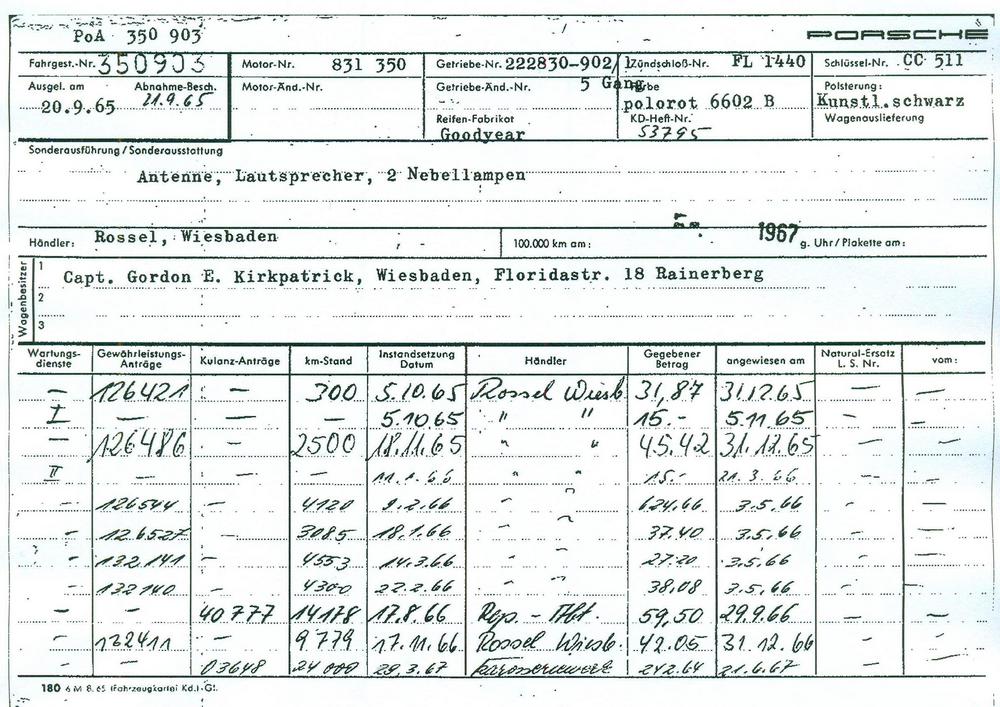 PoA 350 903
PORSCHE
Fahrgest.-Nr. 350903 Motor-Nr. 831 350 Getriebe-Nr. 222830-902/1 Zündschloß-Nr. FL 1440 Schlüssel-Nr. CC 511
Ausgel. am Abnahme-Besch. Motor-Änd.-Nr. Getriebe-Änd.-Nr. 5 Gang Farbe Polsterung:
20.9.65 21.9.65 polorot 6602 B Kunstl.schwarz
Reifen-Fabrikat KD-Heft-Nr. Wagenauslieferung
Goodyear 53795
Sonderausführung / Sonderausstattung
Antenne, Lautsprecher, 2 Nebellampen
Händler: Rossel, Wiesbaden 100.000 km am: 1967 g. Uhr / Plakette am:
Wagenbesitzer
1 Capt. Gordon E. Kirkpatrick, Wiesbaden, Floridastr. 18 Rainerberg
2
3
Wartungs-dienste Gewährleistungs-Anträge Kulanz-Anträge km-Stand Instandsetzung Datum Händler Gegebener Betrag angewiesen am Natural-Ersatz L. S. Nr. vom:
— 126421 — 300 5.10.65 Rossel Wiesb 31,87 31.12.65 — —
I — — — 5.10.65 " " 15.- 5.11.65 — —
— 126486 — 2500 18.11.65 " " 45.42 31.12.65 — —
II — — — 11.1.66 " " 15.- 21.3.66 — —
— 126544 — 4120 9.2.66 " " 624.66 3.5.66 — —
— 126527 — 3085 18.1.66 " " 37.40 3.5.66 — —
— 132.141 — 4553 14.3.66 " " 27.20 3.5.66 — —
— 132140 — 4300 22.2.66 " " 38,08 3.5.66 — —
— — 40777 14178 17.8.66 Rep. - Abt. 59,50 29.9.66 — —
— 132411 — 9779 17.11.66 Rossel Wiesb. 42.05 31.12.66 — —
— — 03648 24000 29.3.67 Karosseriewerk 242.64 21.6.67 — —
180 6 M 8. 65 (Fahrzeugkartei Kd.)-G!.